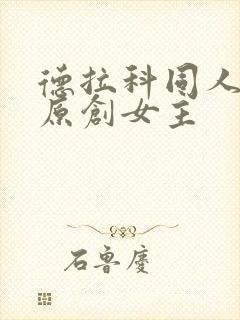 德拉科同人
原創女主
石魯慶